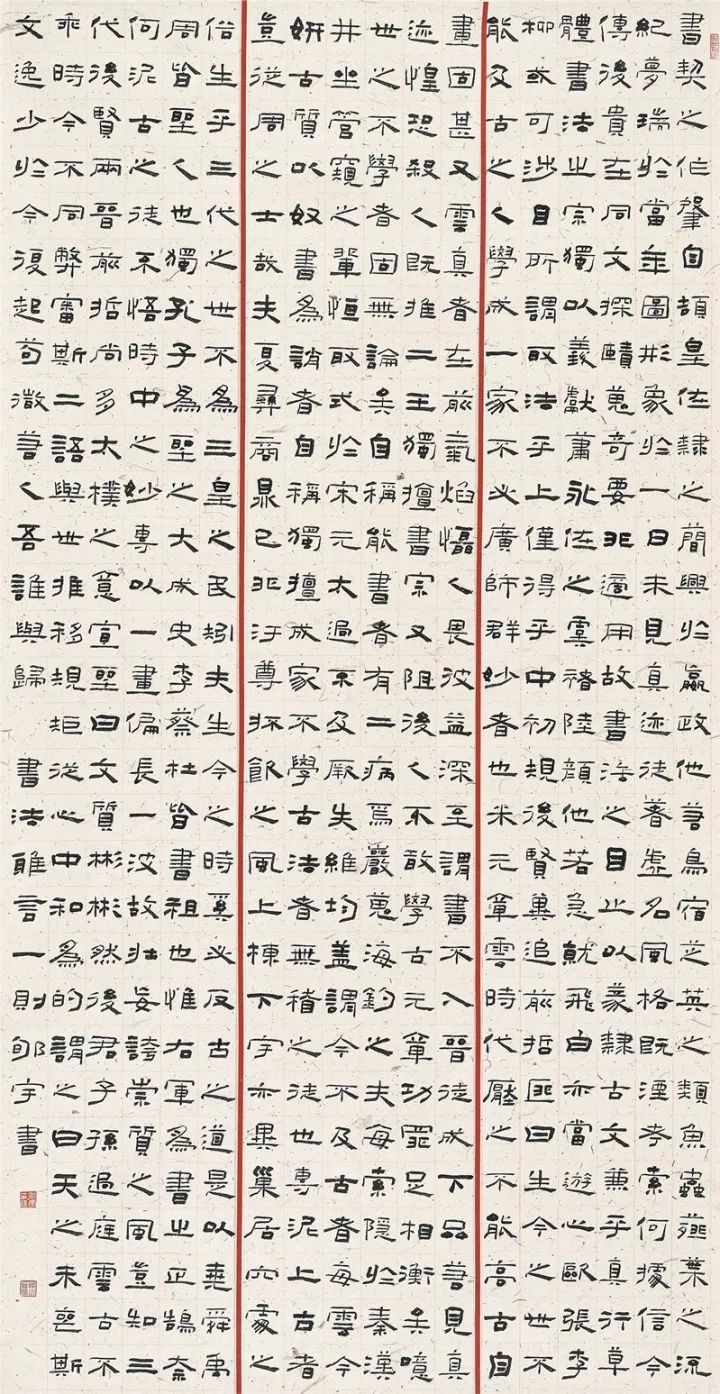 書契之作肇自頡皇佐隸之簡興於嬴政他若鳥宿芝英之類魚蟲薤葉之流
紀夢瑞於當年圖形象於一日未見真迹徒著虛名風格既湮考索何據信今
傳後貴在同文探賾蒐奇要非適用故書法之目止以篆隸古文兼乎真行草
體書法之宗獨以義獻蕭永佐之虞褚陸顏他若急就飛白亦當遊心歐張李
柳或可涉目所謂取法乎上僅得乎中初規後賢冀追前哲匪曰生今之世不
能及古之人學成一家不必廣師群妙者也米元章雲時代壓之不能高古自
畫固甚又雲真者在前氣焰懾人畏彼益深至謂書不入晉徒成下品若見真
迹惶恐殺人既推二王獨擅書宗又阻後人不敢學古元章功罪足相衡矣噫
世之不學者固無論矣自稱能書者有二病焉巖蒐海釣之夫每索隱於秦漢
井坐管窺之輩恒取式於宋元太過不及厥失維均盖謂今不及古者每雲今
妍古質以奴書為誚者自稱獨擅成家不學古法者無稽之徒也專泥上古者
豈從周之士哉夫夏彝商鼎已非汙尊抔飲之風上棟下宇亦異巢居穴處之
俗生乎三代之世不為三皇之民矧夫生今之時奚必反古之道是以堯舜禹
周皆聖人也獨孔子為聖之大成史李蔡杜皆書祖也惟右軍為書之正鵠奈
何泥古之徒不悟時中之妙專以一畫偏長一波故壯妄誇崇質之風豈知三
代後賢兩晉前哲尚多太樸之意宣聖曰文質彬彬然後君子孫過庭雲古不
乖時今不同弊審斯二語與世推移規矩從心中和為的謂之曰天之未喪斯
文逸少於今復起苟微若人吾誰與歸 書法雅言一則郇宇書